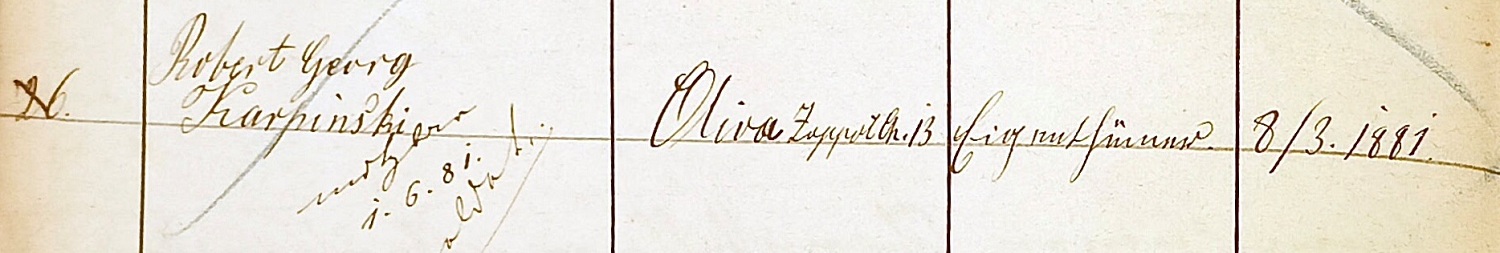 26.
Robert Georg
Karpinski
1. 6. 81.
Oliva Zoppot Ch. 13
Eigenthümer.
8/3. 1881.